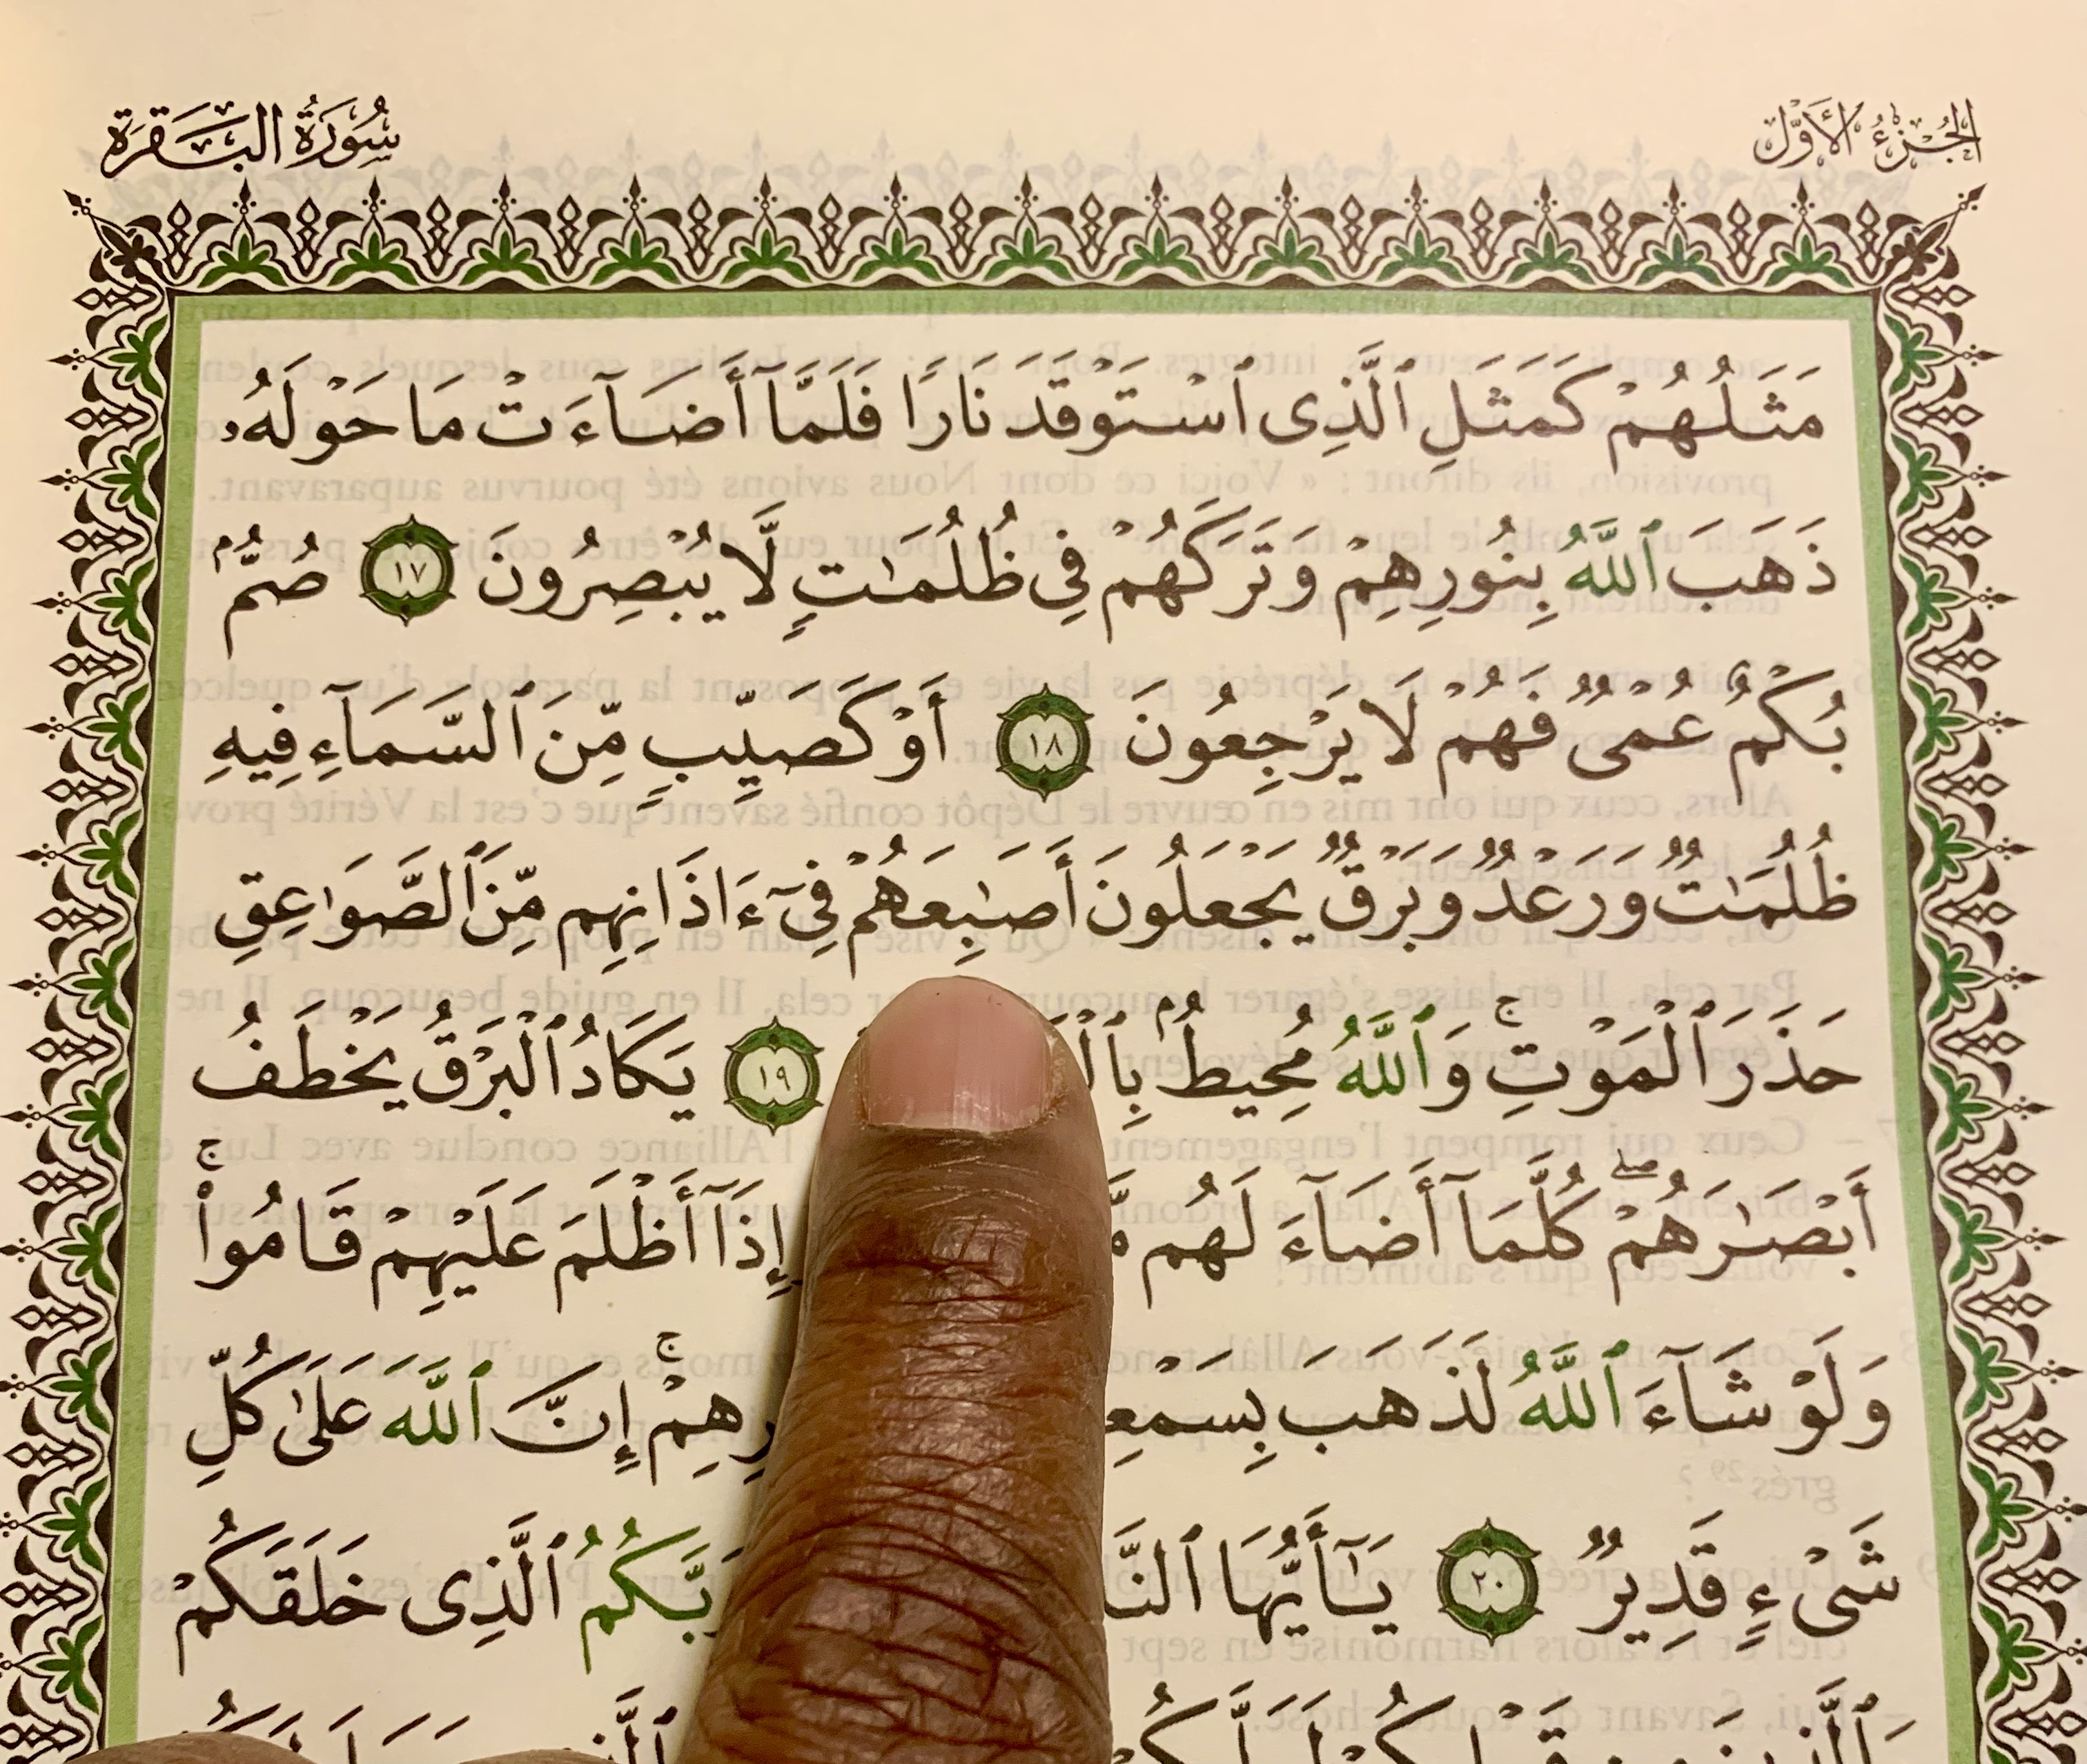 الجُزْءُ الأَوَّل
سُورَةُ البَقَرَة
مَثَلُهُمْ كَمَثَلِ ٱلَّذِى ٱسْتَوْقَدَ نَارًا فَلَمَّآ أَضَآءَتْ مَا حَوْلَهُۥ
ذَهَبَ ٱللَّهُ بِنُورِهِمْ وَتَرَكَهُمْ فِى ظُلُمَـٰتٍ لَّا يُبْصِرُونَ ١٧ صُمٌّۢ
بُكْمٌ عُمْىٌ فَهُمْ لَا يَرْجِعُونَ ١٨ أَوْ كَصَيِّبٍ مِّنَ ٱلسَّمَآءِ فِيهِ
ظُلُمَـٰتٌ وَرَعْدٌ وَبَرْقٌ يَجْعَلُونَ أَصَـٰبِعَهُمْ فِىٓ ءَاذَانِهِم مِّنَ ٱلصَّوَٰعِقِ
حَذَرَ ٱلْمَوْتِ ۚ وَٱللَّهُ مُحِيطٌۢ ١٩ يَكَادُ ٱلْبَرْقُ يَخْطَفُ
أَبْصَـٰرَهُمْ ۖ كُلَّمَآ أَضَآءَ لَهُم إِذَآ أَظْلَمَ عَلَيْهِمْ قَامُوا۟ ۚ
وَلَوْ شَآءَ ٱللَّهُ لَذَهَبَ إِنَّ ٱللَّهَ عَلَىٰ كُلِّ
شَىْءٍ قَدِيرٌ ٢٠ يَـٰٓأَيُّهَا رَبَّكُمُ ٱلَّذِى خَلَقَكُمْ